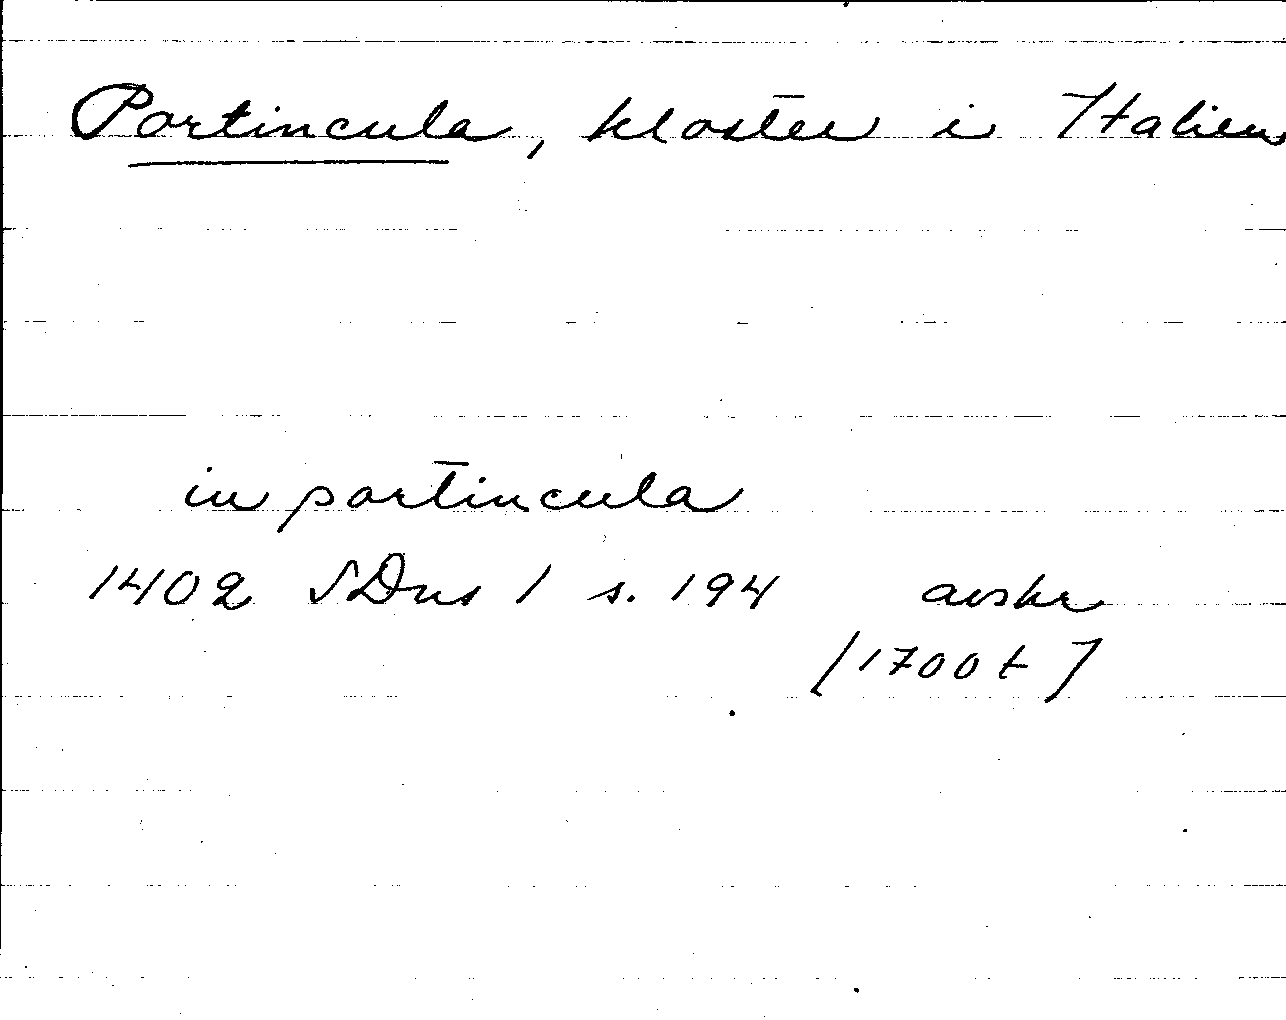 Portincula, kloster i Italien
in portincula
1402 SDns 1 s. 194 avskr
[1700t]